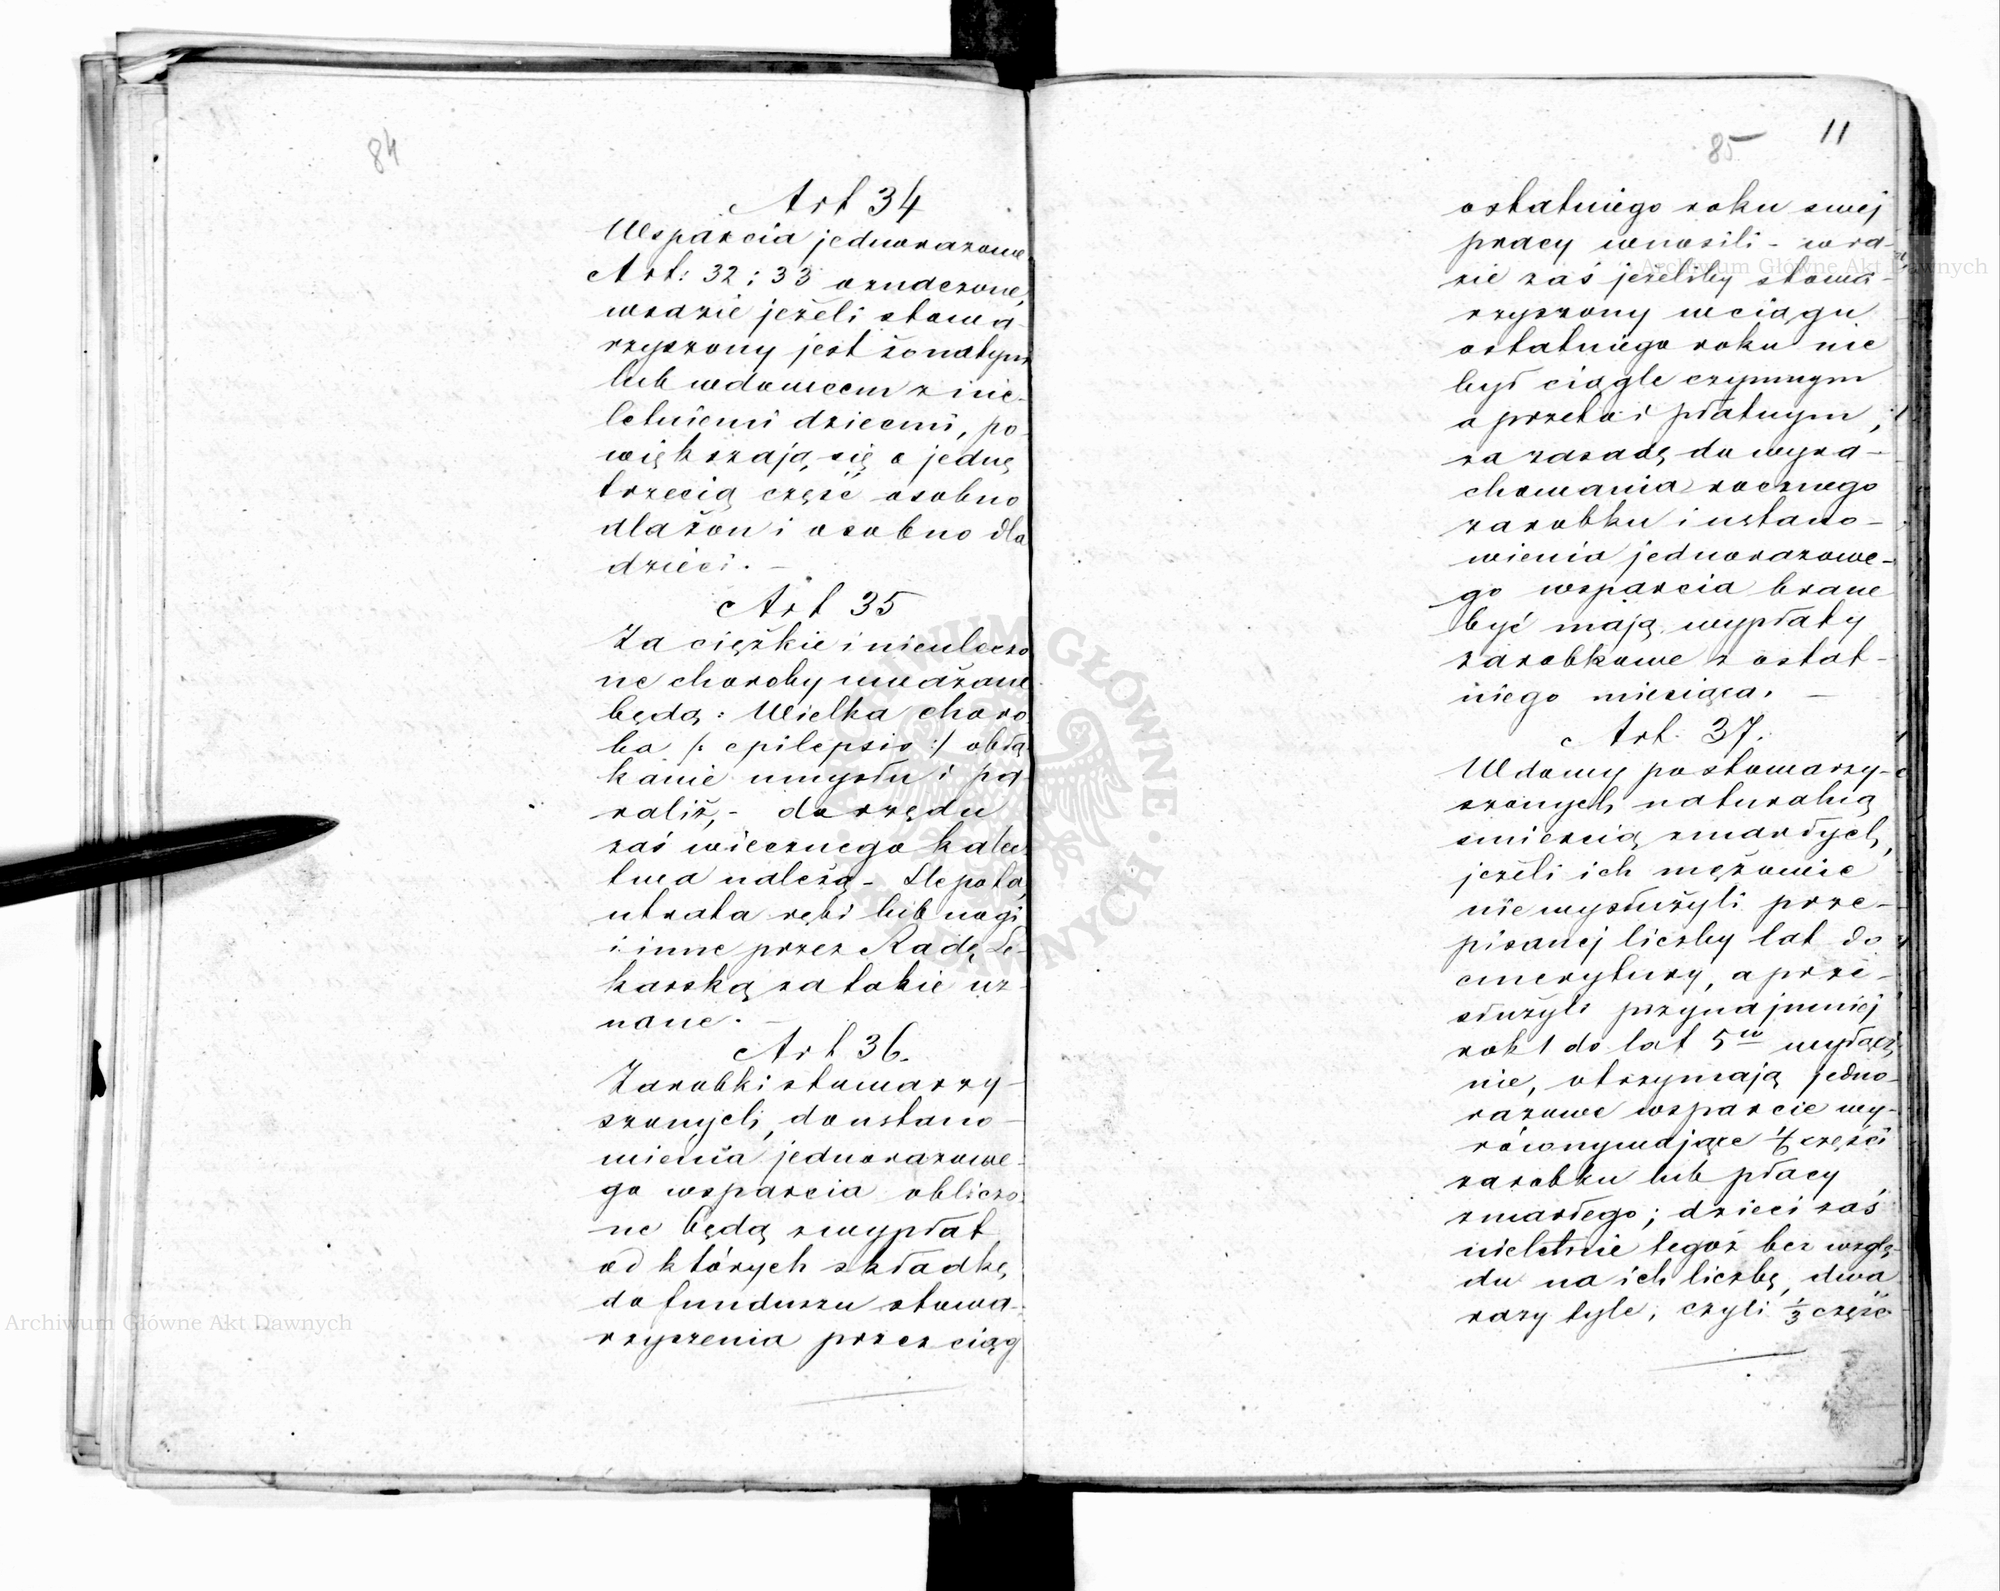 84
Art 34
Wsparcia jednorazowe
Art: 32 i 33 oznaczone,
wrazie jeżeli stowa-
rzyszony jest żonatym
lub wdowcem z nie-
letniemi dziecmi, po-
większają się o jednę
trzecią część osobno
dla żon i osobno dla
dzieci. —
Art 35
Za ciężkie i nieuleczo
ne choroby uważane
będą: Wielka choro
ba /: epilepsia :/ obłą
kanie umysłu i pa-
raliż, - do rzędu
zaś wiecznego kalec
twa należą - Slepota,
utrata ręki lub nogi
i inne przez Radę Le-
karską za takie uz-
nane. —
Art 36.
Zarobki stowarzy-
szonych, do ustano-
wienia jednorazowe-
go wsparcia obliczo-
ne będą z wypłat
od których składkę
do funduszu stowa-
rzyszenia przez ciąg
85 11
ostatniego roku swej
pracy wnosili - w ra-
zie zaś jeżeliby stowa-
rzyszony wciągu
ostatniego roku nie
był ciągle czynnym
a przeto i płatnym,
za zasadę do wyra-
chowania rocznego
zarobku i ustano-
wienia jednorazowe-
go wsparcia brane
być mają wypłaty
zarobkowe z ostat-
niego miesiąca. —
Art. 37.
Wdowy po stowarzy-
szonych, naturalną
smiercią zmarłych,
jeżeli ich mężowie
nie wysłużyli prze-
pisanej liczby lat do
emerytury, a prze-
służyli przynajmniej
rok 1 do lat 5iu wyłącz
nie, otrzymają jedno-
razowe wsparcie wy-
równywające 1/6 części
zarobku lub płacy
zmarłego; dzieci zaś
nieletnie tegoż bez wzglę-
du na ich liczbę, dwa
razy tyle, czyli 1/3 część
Archiwum Główne Akt Dawnych
Archiwum Główne Akt Dawnych
ARCHIWUM GŁÓWNE AKT DAWNYCH